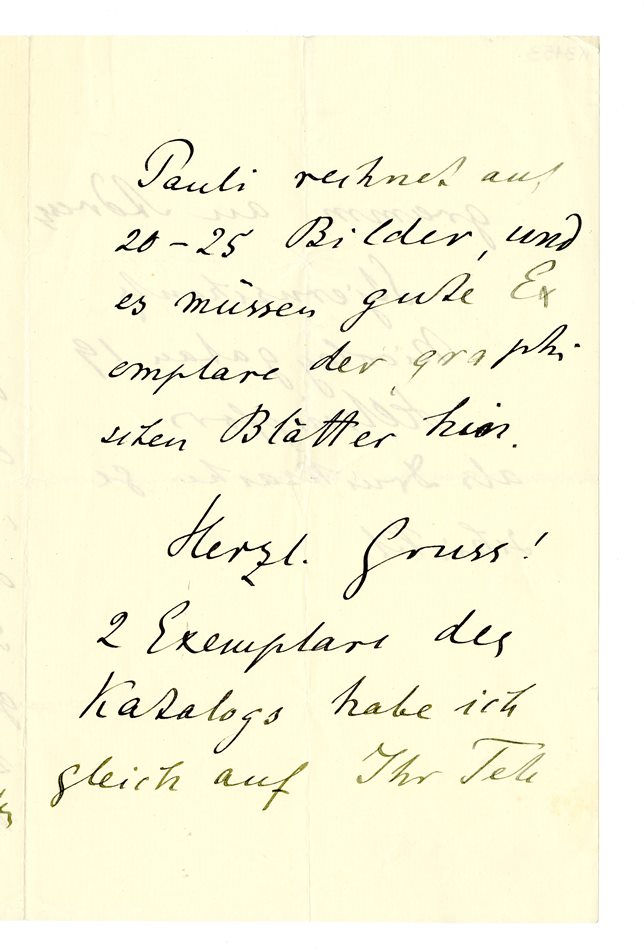 Pauli rechnet auf
20-25 Bilder, und
es müssen gute Ex
emplare der graphi
schen Blätter hin.
Herzl. Gruss!
2 Exemplare des
Katalogs habe ich
gleich auf Ihr Tele